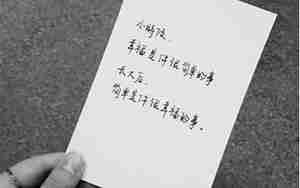 小时候，
幸福是件很简单的事
长大后，
简单是件很幸福的事。